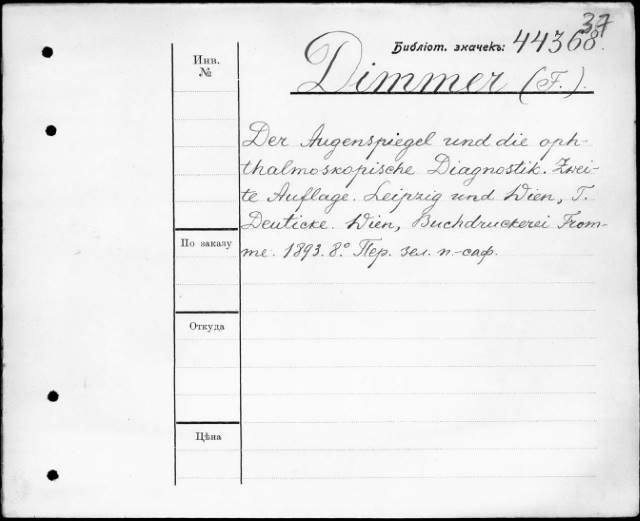 37
Библіот. значекъ: 44368.
Инв.
№
Dimmer (F.).
Der Augenspiegel und die oph-
thalmoskopische Diagnostik. Zwei-
te Auflage. Leipzig und Wien, T.
Deuticke. Wien, Buchdruckerei From-
me. 1893. 8.° Пер. зел. п.-саф.
По заказу
Откуда
Цѣна